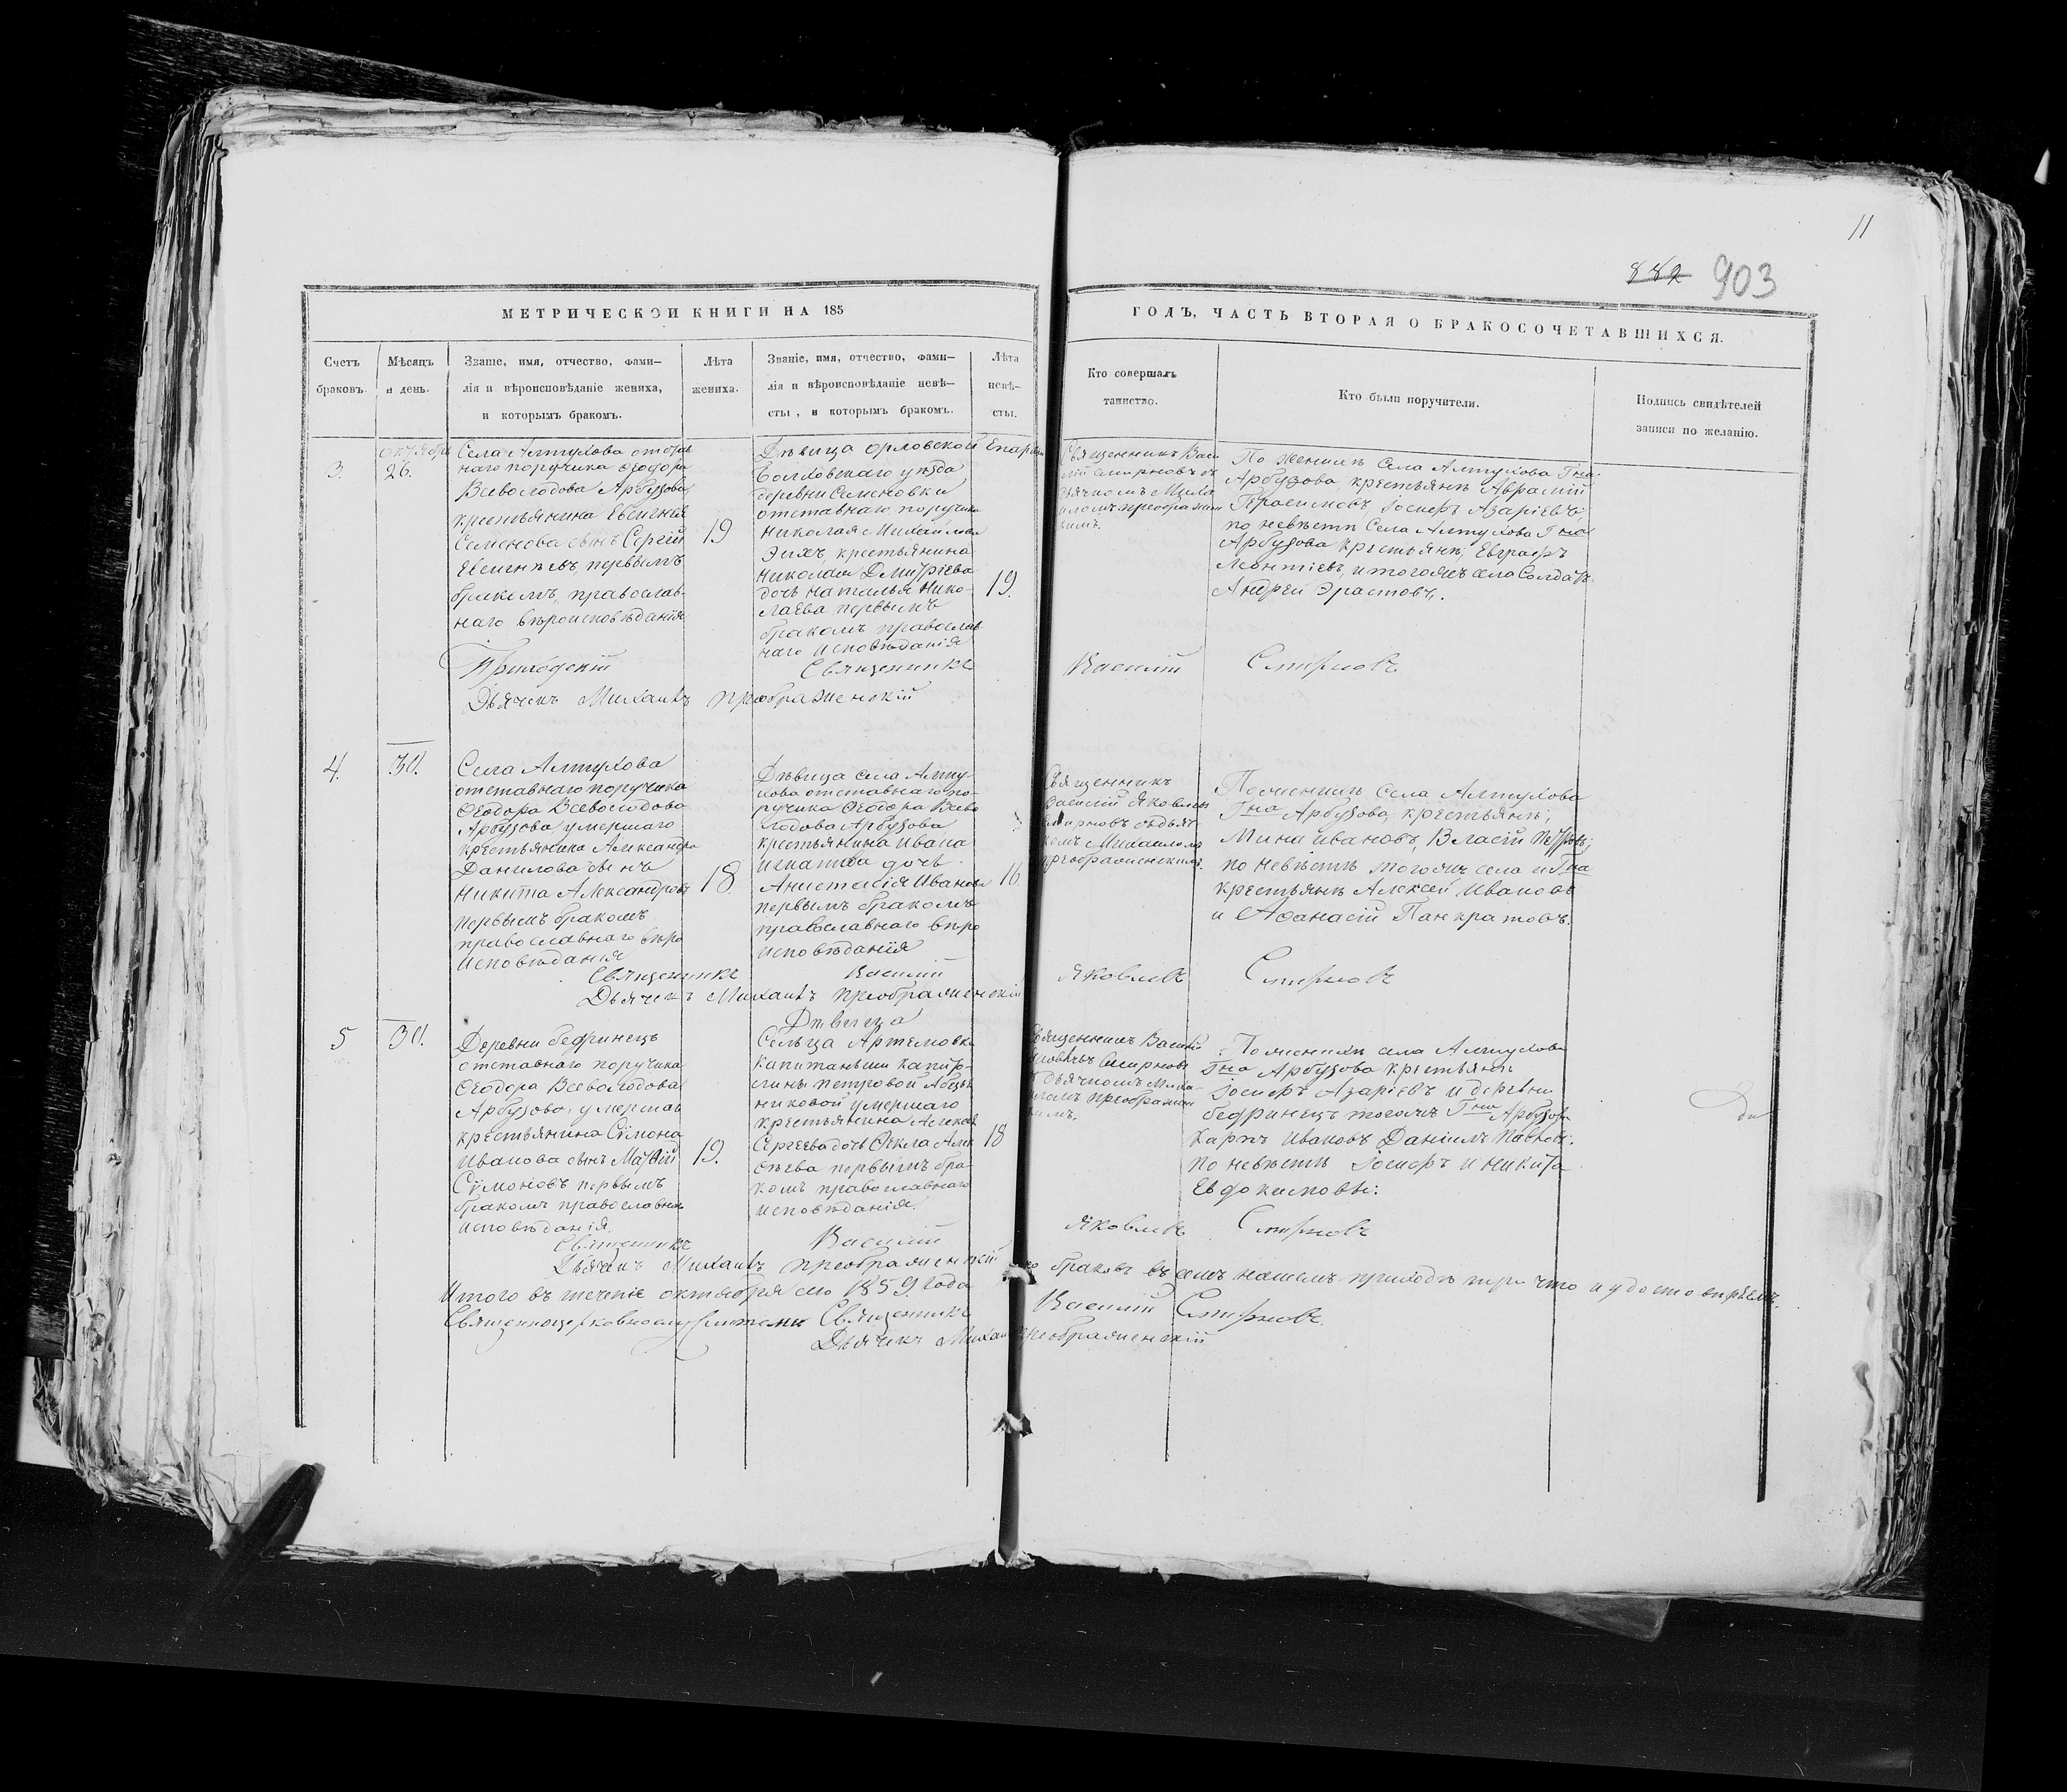 11
882 903
МЕТРИЧЕСКОЙ КНИГИ НА 185
ГОДЪ, ЧАСТЬ ВТОРАЯ О БРАКОСОЧЕТАВШИХСЯ.
Счетъ
браковъ.
Мѣсяцъ
и день.
Званіе, имя, отчество, фами-
лія и вѣроисповѣданіе жениха,
и которымъ бракомъ.
Лѣта
жениха.
Званіе, имя, отчество, фами-
лія и вѣроисповѣданіе невѣ-
сты, и которымъ бракомъ.
Лѣта
невѣ-
сты.
Кто совершалъ
таинство.
Кто были поручители.
Подпись свидѣтелей
записи по желанію.
3.
октября
26.
Села Алтухова отстав
наго поручика Ѳеодора
Всеволодова Арбузова,
крестьянина Евсигнія
Семенова сынъ Сергій
Евсигнѣевъ, первымъ
бракомъ, православ-
наго вѣроисповѣданія
19
Дѣвица Орловской Епархіи
Болховскаго уѣзда
деревни Семеновки
отставнаго поручика
Николая Михайлова
крестьянина
Николая Дмитріева
дочь Наталья Нико-
лаева первымъ
бракомъ православ
наго исповѣданія
19.
Священникъ Васи
лій Смирновъ съ
дьячкомъ Миха
иломъ Преображен
кимъ.
По женихѣ Села Алтухова Гна
Арбузова, крестьянѣ Аврамій
Герасимовъ, Іосифъ Азаріевъ,
по невѣстѣ Села Алтухова Гна
Арбузова крестьянѣ, Евграфъ
Леонтіевъ, и тогожъ села Солдатъ
Андрей Эрастовъ.
Приходскій Священникъ Василій Смирновъ
Дьячекъ Михаилъ Преображенскій
4.
30.
Села Алтухова
отставнаго поручика
Ѳеодора Всеволодова
Арбузова умершаго
крестьянина Александра
Данилова сынъ
Никита Александровъ
первымъ бракомъ
православнаго вѣро
исповѣданія
18.
Дѣвица села Алту-
хова отставнаго по-
ручика Ѳеодора Всево
лодова Арбузова
крестьянина Ивана
Игнатова дочь
Анастасія Иванова
первымъ бракомъ
православнаго вѣро
исповѣданія
16.
Священникъ
Василій Яковлевъ
Смирновъ съ дьяч
комъ Михаиломъ
Преображенскимъ.
По женихѣ Села Алтухова
Гна Арбузова, крестьянѣ,
Мина Ивановъ, Власій Петровъ;
по невѣстѣ тогожъ села и Гна
крестьянѣ Алексѣй Ивановъ
и Аѳанасій Панкратовъ.
Священникъ Василій Яковлевъ Смирновъ
Дьячекъ Михаилъ Преображенскій
5
30.
Деревни Бедринецъ
отставнаго поручика
Ѳеодора Всеволодова
Арбузова, умершаго
крестьянина Сѵмона
Иванова сынъ Матѳій
Сѵмоновъ первымъ
бракомъ православнаго
исповѣданія.
19.
Дѣвица
Сельца Артемовки
Капитанши
Петровой
никовой умершаго
крестьянина Алексѣя
Сергѣева дочь Ѳекла Алек
сѣева первымъ бра-
комъ православнаго
исповѣданія.
18
Священникъ Василій
Яковлевъ Смирновъ
съ дьячкомъ Миха-
иломъ Преображен
кимъ.
По женихѣ села Алтухова
Гна Арбузова крестьянѣ
Іосифъ Азаріевъ и деревни
Бедринецъ тогожъ Гна Арбузова
Карпъ Ивановъ Даніилъ Павловъ.
по невѣстѣ Іосифъ и Никита
Евдокимовы:
Священникъ Василій Яковлевъ Смирновъ
Дьячекъ Михаилъ Преображенскій
Итого въ теченіе октября сего 1859 года браковъ въ семъ нашемъ приходѣ три что и удостовѣряемъ.
Священноцерковнослужители Священникъ Василій Смирновъ
Дьячекъ Михаилъ Преображенскій